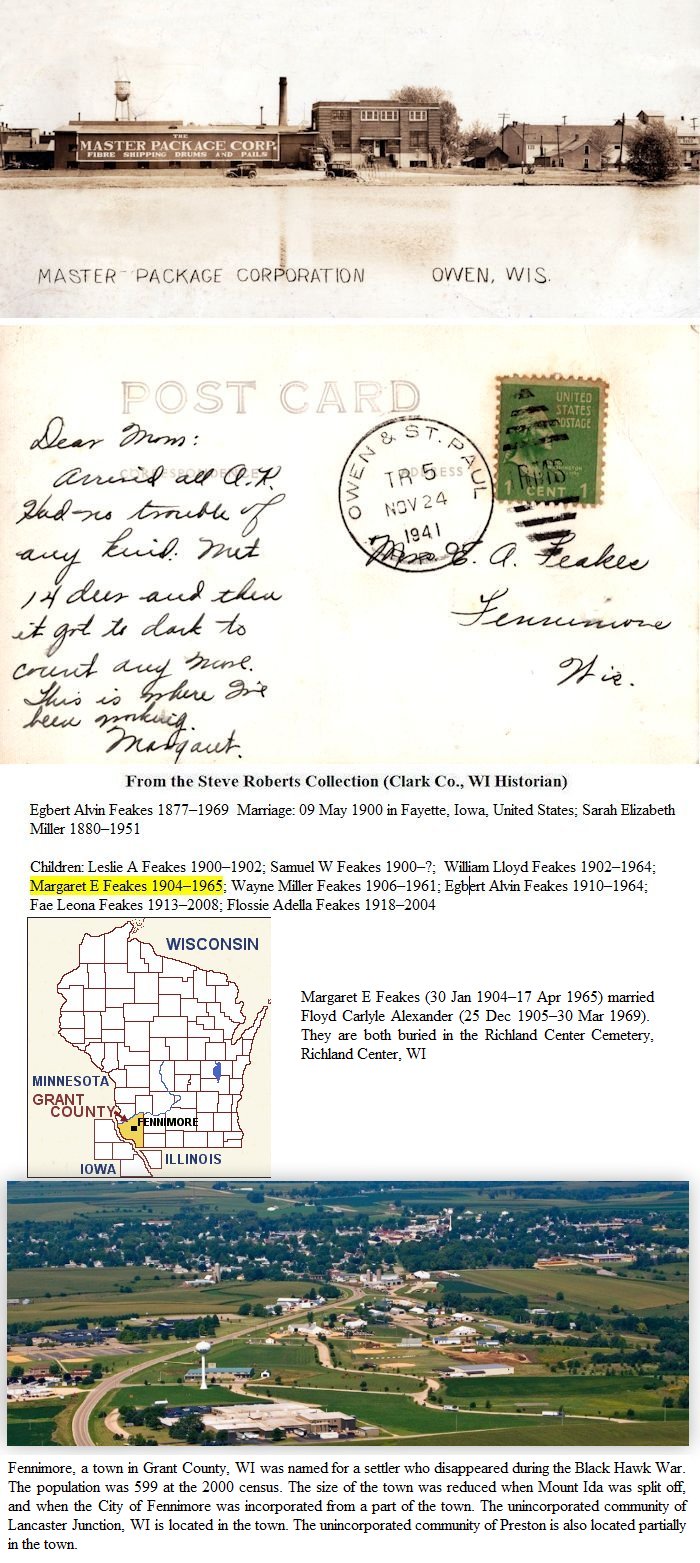 THE
MASTER PACKAGE CORP.
FIBRE SHIPPING DRUMS AND PAILS
MASTER PACKAGE CORPORATION OWEN, WIS.
POST CARD
CORRESPONDENCE ADDRESS
UNITED
STATES
POSTAGE
WASHINGTON
1 CENT 1
RMS
OWEN & ST. PAUL
TR 5
NOV 24
1941
R.P.O.
Dear Mom:
Arrived all O.K.
Had no trouble of
any kind. Met
14 deer and then
it got to dark to
count any more.
This is where I've
been working.
Margaret.
Mrs. E. A. Feakes
Fennimore
Wis.
From the Steve Roberts Collection (Clark Co., WI Historian)
Egbert Alvin Feakes 1877–1969 Marriage: 09 May 1900 in Fayette, Iowa, United States; Sarah Elizabeth
Miller 1880–1951
Children: Leslie A Feakes 1900–1902; Samuel W Feakes 1900–?; William Lloyd Feakes 1902–1964;
Margaret E Feakes 1904–1965; Wayne Miller Feakes 1906–1961; Egbert Alvin Feakes 1910–1964;
Fae Leona Feakes 1913–2008; Flossie Adella Feakes 1918–2004
WISCONSIN
MINNESOTA
GRANT
COUNTY
FENNIMORE
IOWA
ILLINOIS
Margaret E Feakes (30 Jan 1904–17 Apr 1965) married
Floyd Carlyle Alexander (25 Dec 1905–30 Mar 1969).
They are both buried in the Richland Center Cemetery,
Richland Center, WI
Fennimore, a town in Grant County, WI was named for a settler who disappeared during the Black Hawk War.
The population was 599 at the 2000 census. The size of the town was reduced when Mount Ida was split off,
and when the City of Fennimore was incorporated from a part of the town. The unincorporated community of
Lancaster Junction, WI is located in the town. The unincorporated community of Preston is also located partially
in the town.